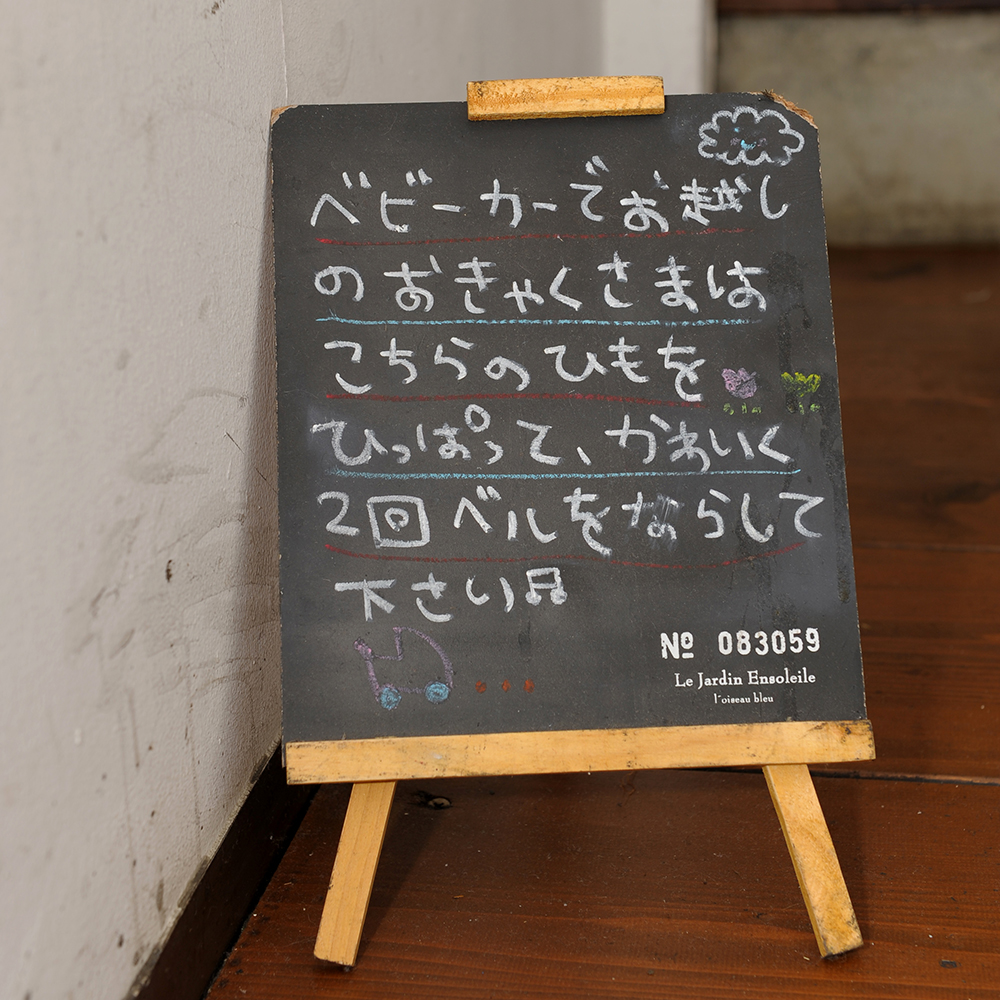 ベビーカーでお越し
のおきゃくさまは
こちらのひもを
ひっぱって、かわいく
2回ベルをならして
下さい♫
№ 083059
Le Jardin Ensoleile
l'oiseau bleu